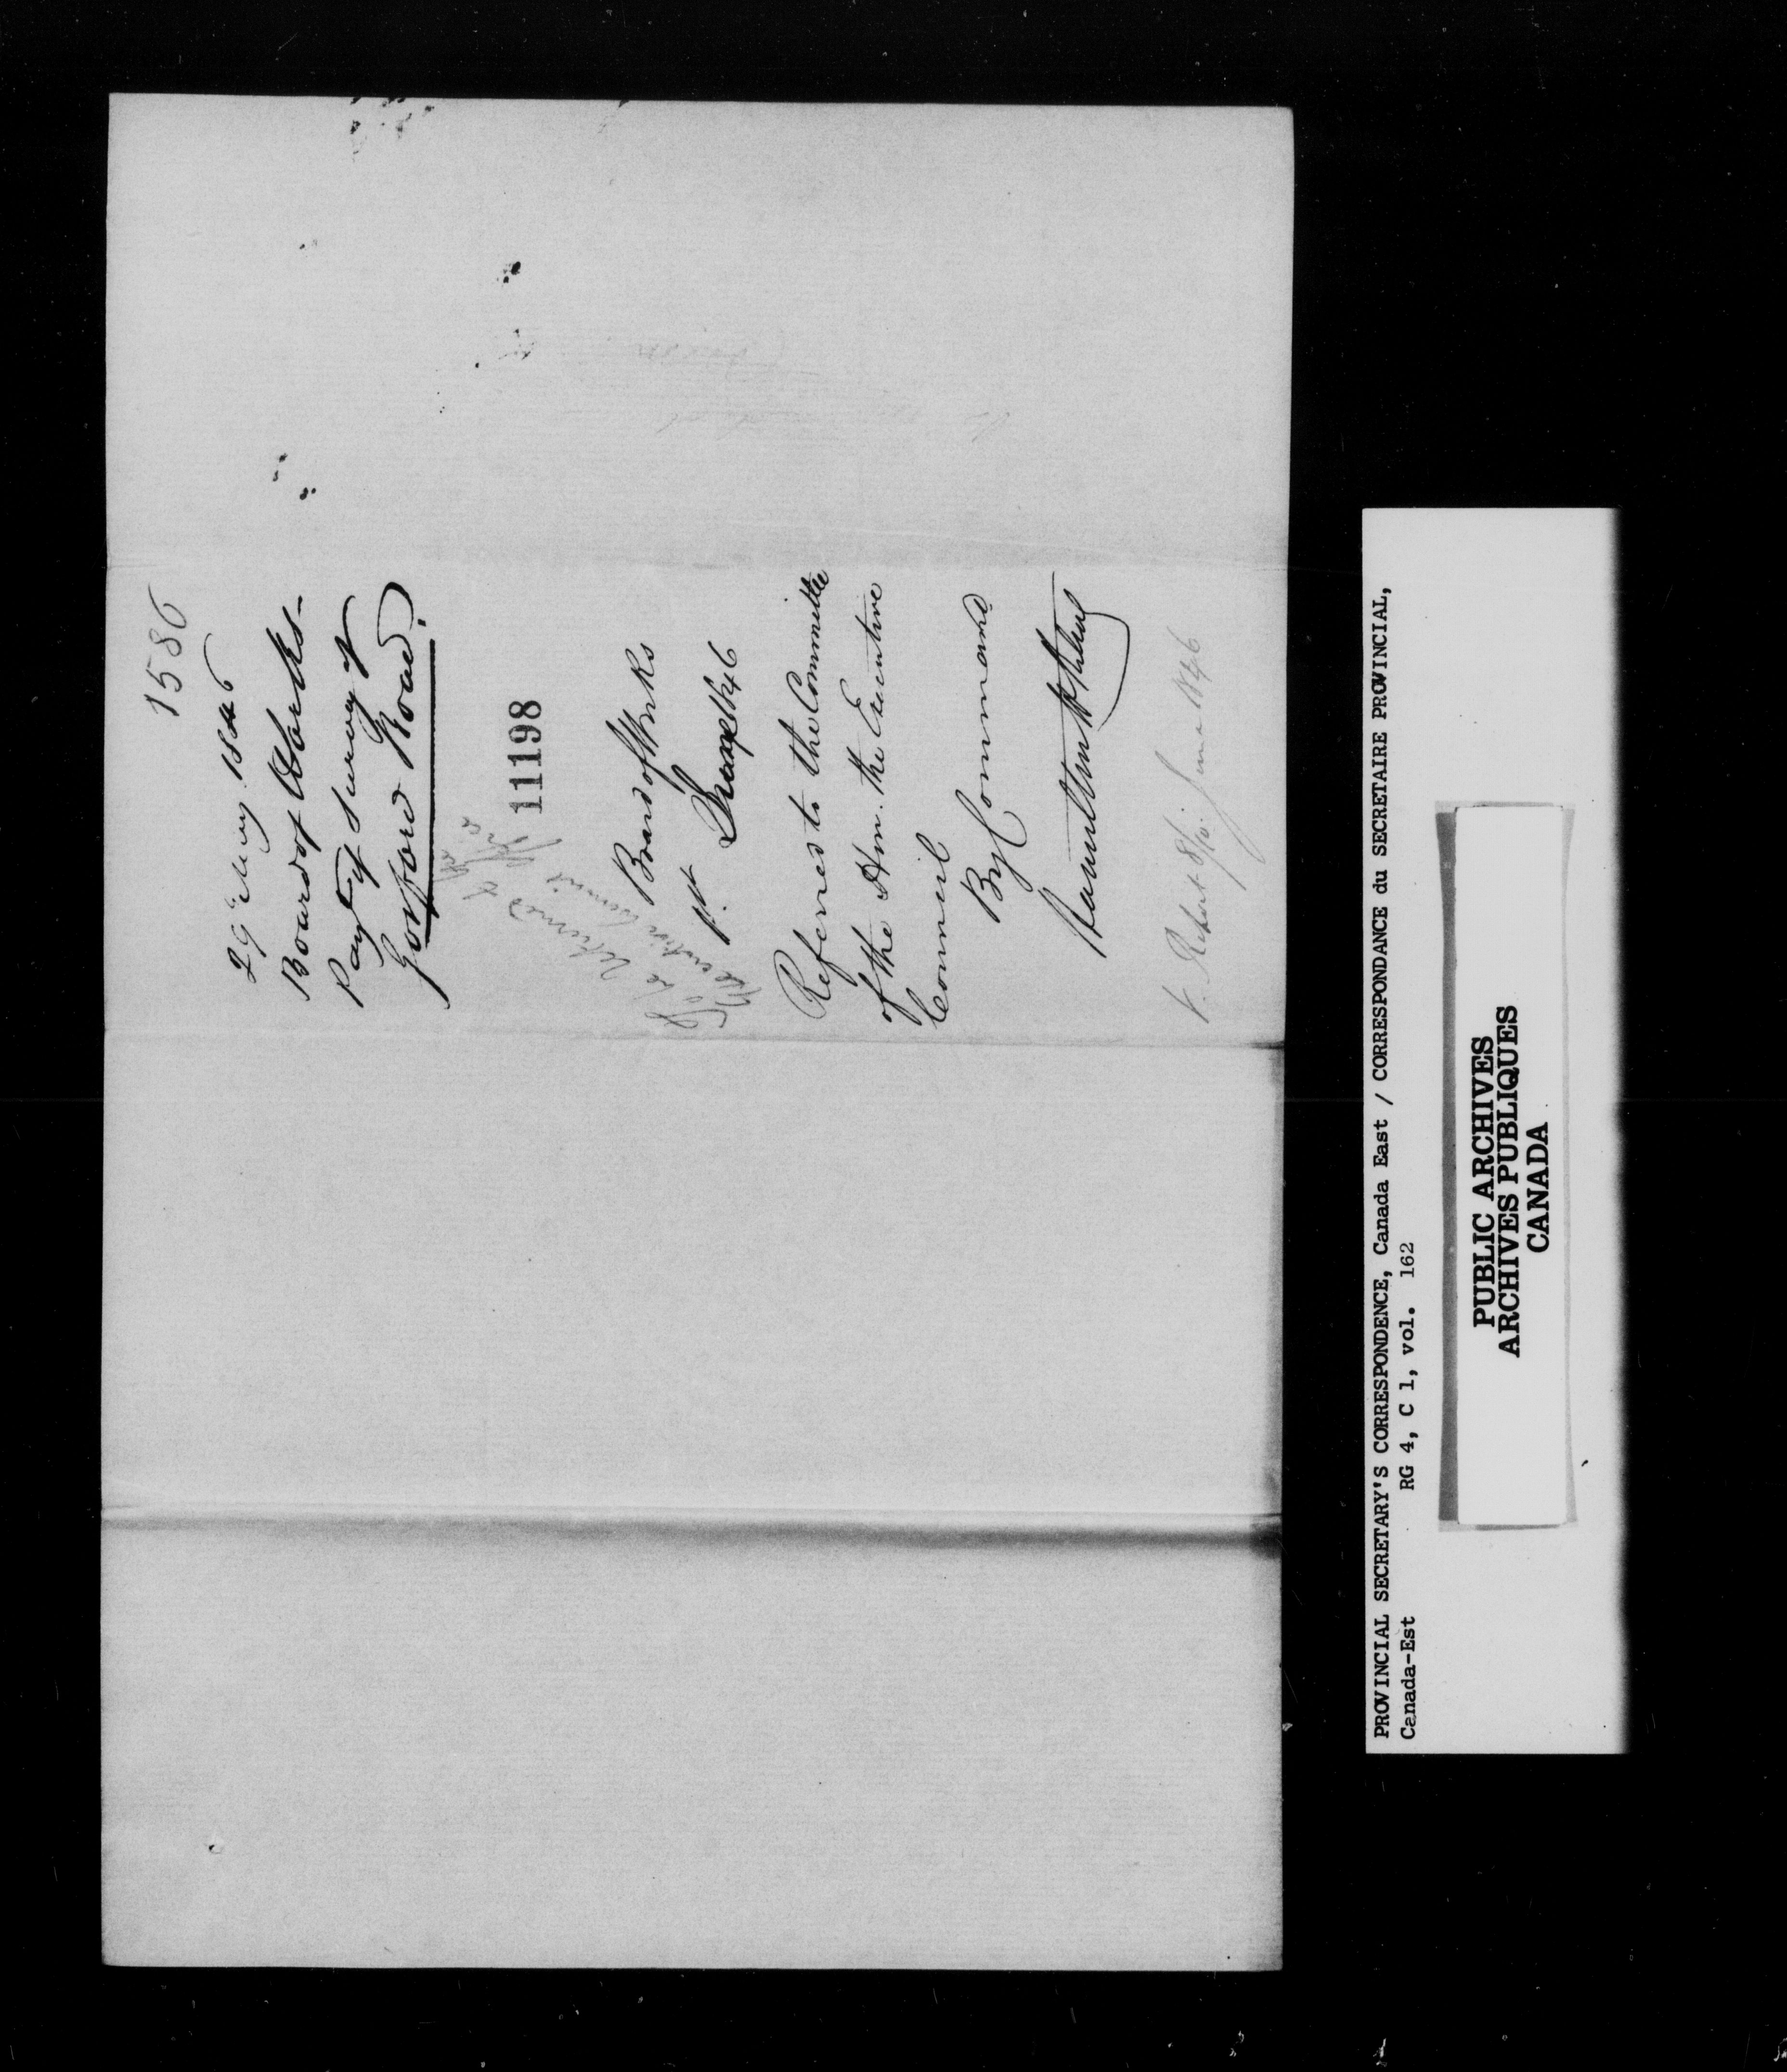 1586
29 May 1846
Board of Works-
Payt of Survey of
Gosford Road.
To be returned to the
Executive Council Office
11198
Board of Works
1st June 1846
Referred to the Committee
of the Hon. the Executive
Council
By Command
V. Report 8/10. June 1846
PROVINCIAL SECRETARY'S CORRESPONDENCE, Canada East / CORRESPONDANCE du SECRETAIRE PROVINCIAL,
Canada-Est RG 4, C 1, vol. 162
PUBLIC ARCHIVES
ARCHIVES PUBLIQUES
CANADA